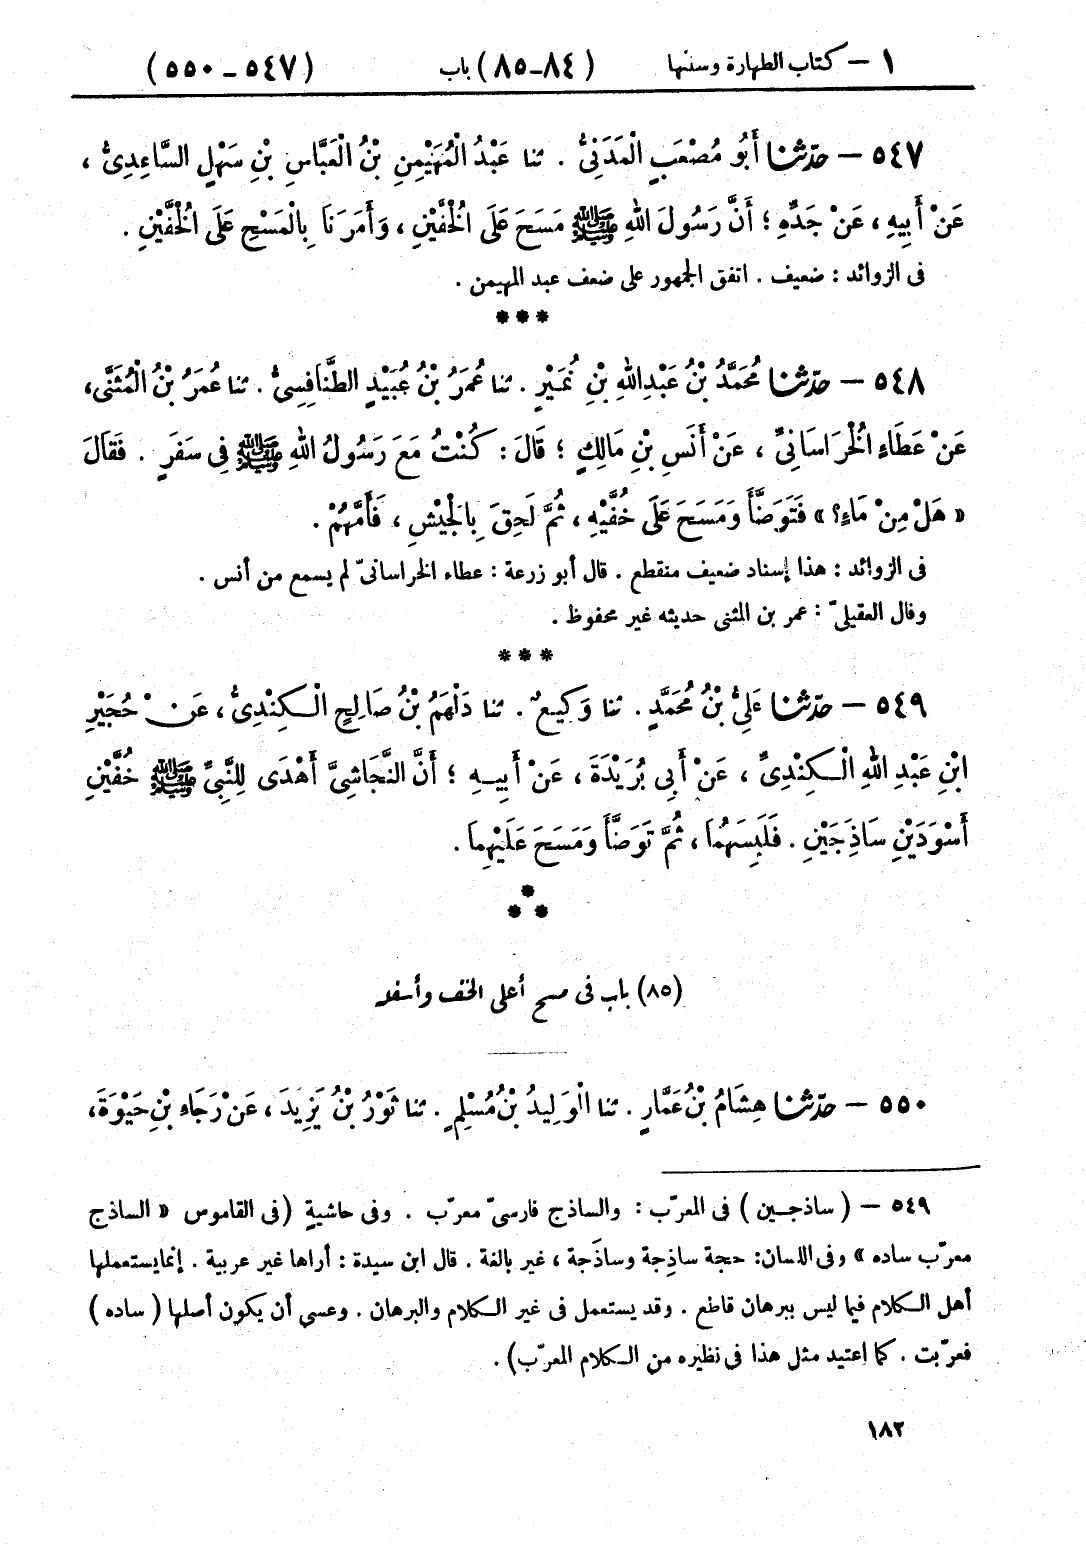 ١ – كتاب الطهارة وسننها (٨٤-٨٥) باب (٥٤٧ - ٥٥٠)
٥٤٧ – حدّثنا أَبُو مُصْعَبٍ الْمَدَنِيُّ . ثنا عَبْدُ الْمُهَيْمِنِ بْنُ الْعَبَّاسِ بْنِ سَهْلٍ السَّاعِدِيُّ ،
عَنْ أَبِيهِ ، عَنْ جَدِّهِ ؛ أَنَّ رَسُولَ اللهِ ﷺ مَسَحَ عَلَى الْخُفَّيْنِ ، وَأَمَرَنَا بِالْمَسْحِ عَلَى الْخُفَّيْنِ .
فى الزوائد : ضعيف . اتفق الجمهور على ضعف عبد المهيمن .
***
٥٤٨ – حدّثنا مُحَمَّدُ بْنُ عَبْدِ اللهِ بْنِ نُمَيْرٍ . ثنا عُمَرُ بْنُ عُبَيْدٍ الطَّنَافِسِيُّ . ثنا عُمَرُ بْنُ الْمُثَنَّى،
عَنْ عَطَاءٍ الْخُرَاسَانِيِّ ، عَنْ أَنَسِ بْنِ مَالِكٍ ؛ قَالَ : كُنْتُ مَعَ رَسُولُ اللهِ ﷺ فِى سَفَرٍ . فَقَالَ
« هَلْ مِنْ مَاءٍ؟ » فَتَوَضَّأَ وَمَسَحَ عَلَى خُفَّيْهِ ، ثُمَّ لَحِقَ بِالْجَيْشِ ، فَأَمَّهُمْ .
فى الزوائد : هذا إسناد ضعيف منقطع . قال أبو زرعة : عطاء الخراسانىّ لم يسمع من أنس .
وقال العقيلىّ : عمر بن المثنى حديثه غير محفوظ .
***
٥٤٩ – حدّثنا عَلِيُّ بْنُ مُحَمَّدٍ . ثنا وَكِيعٌ . ثنا دَلْهَمُ بْنُ صَالِحٍ الْكِنْدِيُّ ، عَنْ حُجَيْرِ
ابْنِ عَبْدِ اللهِ الْكِنْدِيِّ ، عَنْ أَبِى بُرَيْدَةَ ، عَنْ أَبِيهِ ؛ أَنَّ النَّجَاشِيَّ أَهْدَى لِلنَّبِيِّ ﷺ خُفَّيْنِ
أَسْوَدَيْنِ سَاذِجَيْنِ . فَلَبِسَهُمَا ، ثُمَّ تَوَضَّأَ وَمَسَحَ عَلَيْهِمَا .
*
* *
(٨٥) باب فى مسح أعلى الخف وأسفله
٥٥٠ – حدّثنا هِشَامُ بْنُ عَمَّارٍ . ثنا الْوَلِيدُ بْنُ مُسْلِمٍ . ثنا ثَوْرُ بْنُ يَزِيدَ ، عَنْ رَجَاءِ بْنِ حَيْوَةَ،
٥٤٩ – ( ساذجين ) فى المعرّب : والساذج فارسىّ معرّب . وفى حاشيةٍ ( فى القاموس « الساذج
معرّب ساده » وفى اللسان: حجة ساذِجة وساذَجة ، غير بالغة . قال ابن سيدة : أراها غير عربية . إنما يستعملها
أهل الكلام فيما ليس ببرهان قاطع . وقد يستعمل فى غير الكلام والبرهان . وعسى أن يكون أصلها ( ساده )
فعرّبت . كما اعتيد مثل هذا فى نظيره من الكلام المعرّب) .
١٨٢